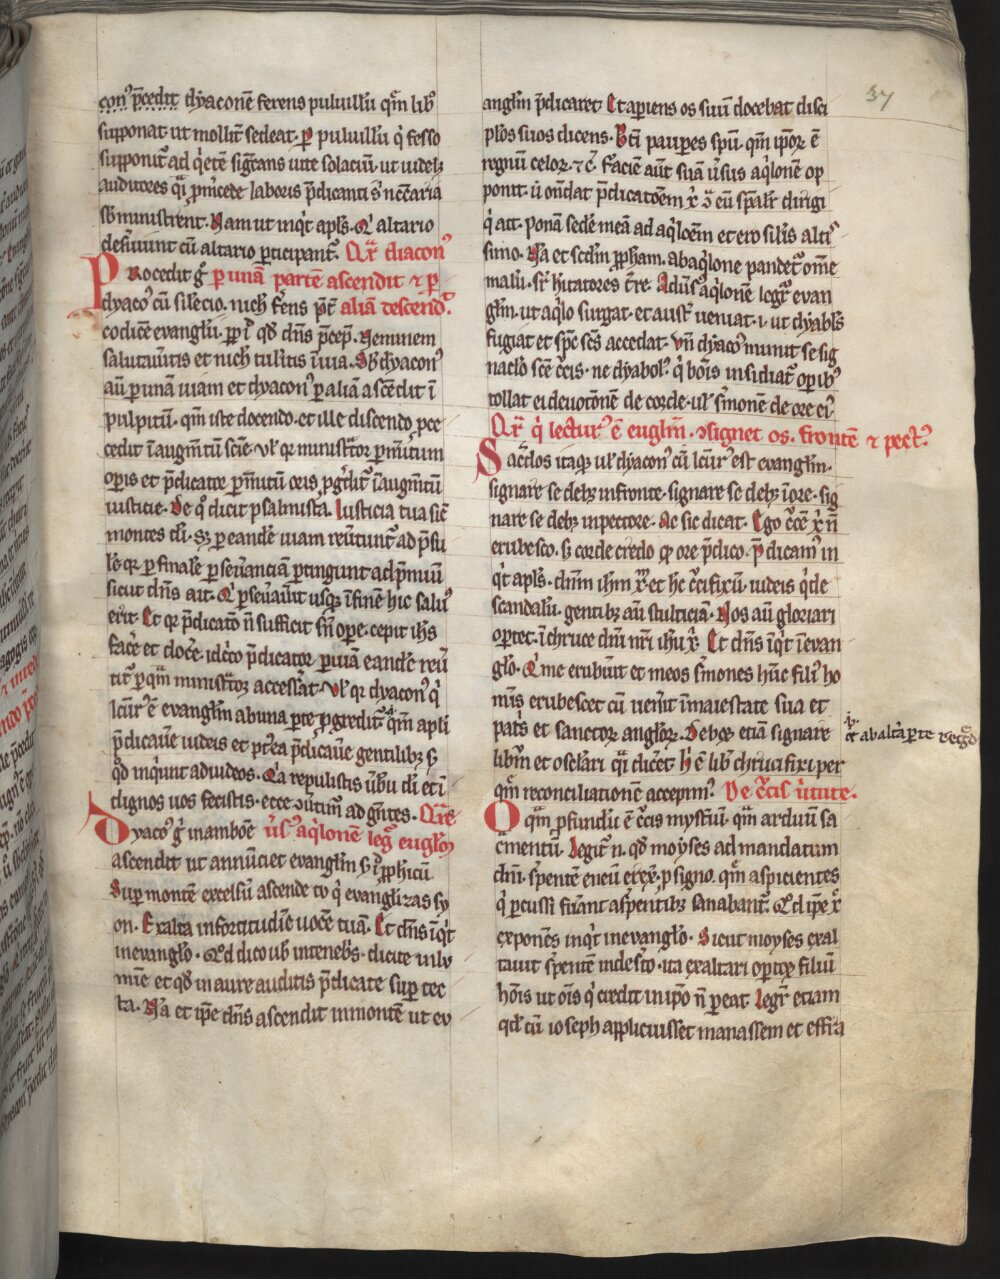 37
con⁹ p̄cedit dyaconē ferens puluillū qm̄ lib⁹
supponat ut mollit̄ sedeat. p̲ puluillū q̇ fesso
supponit᷑ ad q̇etē sigt̄ans uite solaciū. ut uidelꝫ
auditores qi p̄ mercede laboris p̄dicanti s̄ necc̄aria
sb̄ministrent. Nam ut inq̇t apls̄. Qi altario
deseruiunt cū altario p̲ticipant᷑. Qr̄ diacon⁹
Procedit g̊ p̲ unā partē ascendit ⁊ p̲
dyaco⁹ cū silecio. nich ferens p̄t̄ aliā descend᷑.
codicē evangl̄ii. pp̲ i᷑ qd̄ dn̄s p̄cep̄. Neminem
salutaueritis et nich tuleritis ī uia. Sb̄dyacon⁹
aū p̲ unā uiam et dyacon⁹ p̲ aliā ascēdit ī
pulpitū. qm̄ iste docendo. et ille discendo p̲ce
cedit ī augm̄tū scīe. ul̄ q̲ ministror̄ p̲ meritum
op̲is et p̄dicator̄ p̲ meritū oris p̲gr̄dit᷑ ī augm̄tū
iusticie. De q̊ dicit psalmista. Iusticia tua sic̄
montes dī. Sꝫ p̲ eandē uiam reūtunt᷑ ad p̄su
lē q̲ p̲ finalē p̲seueranciam p̲tingunt ad p̄miū
sicut dn̄s ait. Qi p̲seuauit usqꝫ ī finē hic salu⁹
erit. Et q̲ p̄dicatō n̄ sufficit sn̄ op̲e. cepit ih̄s
facē et docē. idcirco p̄dicator p̲ uiam eandē reū
tit᷑ p̲ quā ministror accesserat. Ul̄ q̲ dyacon⁹ q̇
lcur⁹ ē evangl̄m ab una p̲te p̲greditur qm̄ apl̄i
p̄dicaue iudeis et p⁹ea p̄dicaue gentilibꝫ s̄
qd̄ inq̇unt ad iudeos. Qa repulistis ūbū di et ī
dignos uos fecistis. ecce ɔuertim⁹ ad gn̄tes. Qare
Dyaco⁹ g̊ in ambōe ūs⁹ aq̇lonē leg̊ euglm̄
ascendit ut annūciet evangl̄m s̄ i᷑ pphīcū.
Sup̲ montē excelsū ascende tu q̇ evangelizas sy
on. Exalta in fortitudīe uocē tuā. Et dn̄s īq̇t
in evanglo. Qd̄ dico uob̄ in tenebr̄s. dicite in lu
mīe et qd̄ in aure auditis p̄dicate sup̲ tec
ta. Na et ip̄e dn̄s ascendit in montē ut ev
anglm̄ p̄dicaret. Et ap̲iens os suū docebat disci
pl̄os suos dicens. Bt̄i paup̲es spū. qm̄ ip̄or̄ ē
regnū celor̄. ⁊ c̄. Faciē aūt suā ūsus aq̇lonē op
ponit. ū ondat p̄dicatōem x̄ ɔ̄ eū sp̄alr̄ dirigi
q̇ ait. Ponā sedē meā ad aq̇lōem et ero silīs alti⁹
simo. Na et scdm̄ ppham. ab aq̇lone pandet᷑ ōme
malū. sr̄ hitatores t̄re. Adūs⁹ aq̇lonē legit᷑ evan
glm̄. ut aq̇lo surgat. et aust᷑ ueniat. i. ut dyabls̄
fugiat et spc̄ sc̄s accedat. Uñ dyaco⁹ munit se sig
naclō scē c̄cis. ne dyabol⁹ q̇ boīs insidiat᷑ op̲ib⁹
tollat ei deuotōnē de corde. ul̄ s̄monē de ore ei⁹
Qr̄ q̇ lectur⁹ ē euglm̄. ɔsignet os. frontē ⁊ pect⁹.
Sac̄dos itaqꝫ ul̄ dyacon⁹ cū lcur⁹ est evanglm̄.
signare se debꝫ in fronte. signare se debꝫ ī ore. sig
nare se debꝫ in pectore. Ac sic dicat. Ego c̄cē x̄ n̄
erubesco. sꝫ corde credo qd̄ ore p̄dico. P̄dicam⁹ in
q̇t apls̄. dnm̄ ihm̄ xp̄m et hc̄ c̄cifixū. iudeis q̇de
scandalū. gentibꝫ aū stulticiā. Nos aū gloriari
oportet. ī chruce dn̄i nr̄i ihū x̄. Et dn̄s īq̇t ī evan
glo. Qi me erubuit et meos s̄mones hūc fili⁹ ho
mīs erubescet cū uen̄it ī maiestate sua et
pat̄s et sanctor̄ anglor̄. Debꝫ etiā signare
libr̄m et osclāri qi dicet. hic ē lib̄ chrucifixi per
qm̄ reconciliationē accepim⁹. De c̄cis uirtute.
O q̄m p̲fundū ē c̄cis mystiū. q̄m arduū sa
cmentū. Legit᷑ n. qd̄ moyses ad mandatum
dn̄i. s̄pentē eneū erex̄. p̲ signo. qm̄ aspicientes
q̇ p̲cussi fuant a s̄pentibꝫ sanabant᷑. Qd̄ ip̄e x̄
exponēs inq̇t in evanglo. Sicut moyses exal
tauit s̄pentē in deserto. ita exaltari oportet filiū
hoīs ut oīs q̇ credit in ip̄o n̄ p̲eat. Legit᷑ etiam
qd̄ cū ioseph applicuisset manassem et effra